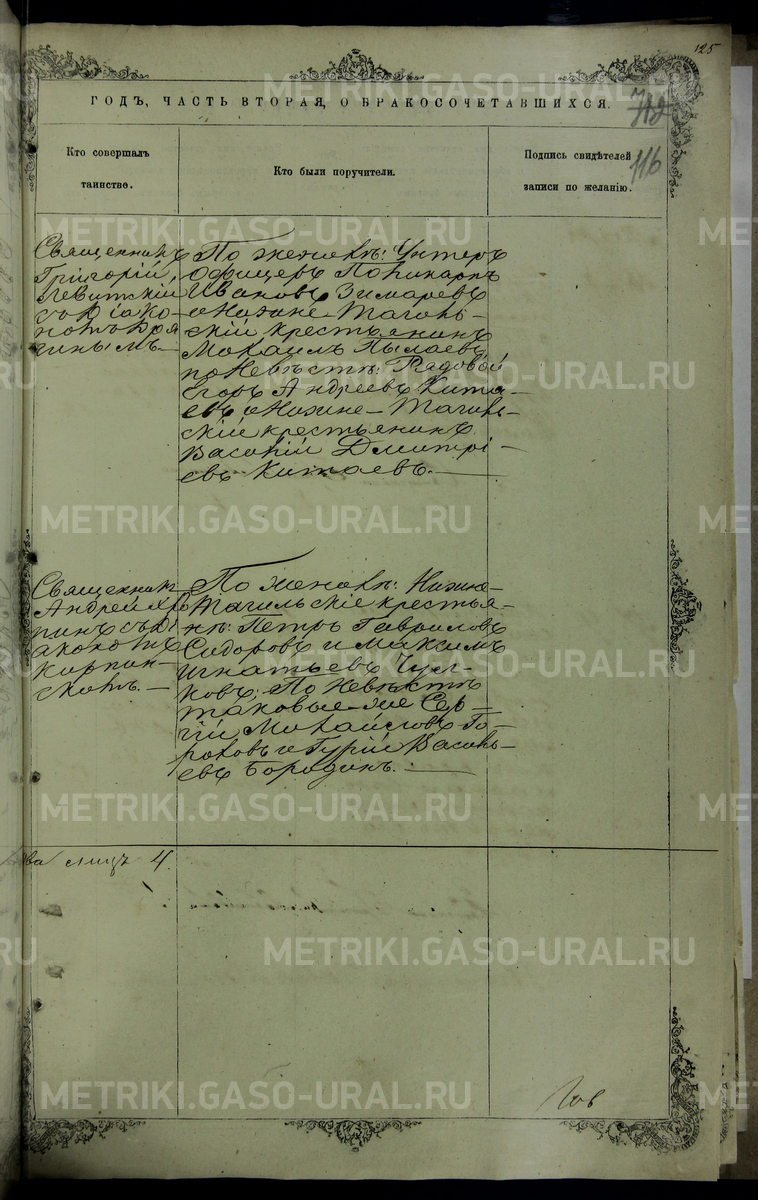 125
ГОДЪ, ЧАСТЬ ВТОРАЯ, О БРАКОСОЧЕТАВШИХСЯ.
116
Кто совершалъ
таинство.
Кто были поручители.
Подпись свидѣтелей
записи по желанію.
Священникъ
Григорій
Левитскій
съ Діако
номъ
По женихѣ: Унтеръ
Офицеръ Поликарпъ
Ивановъ Зимаревъ
и Нижне-Тагиль-
скій крестьянинъ
Михаилъ Пылаевъ;
по Невѣстѣ: Рядовой
Егоръ Андреевъ Кита
евъ и Нижне-Тагиль-
скій крестьянинъ
Василій Дмитрі-
евъ Китаевъ.
Священникъ
Андрей Хло
пинъ съ Ді
акономъ
Карпин-
скимъ.
По женихѣ: Нижне-
Тагильскіе крестья-
не: Петръ Гавриловъ
Сидоровъ и Максимъ
Игнатьевъ Чул-
ковъ; По Невѣстѣ
таковые-же Сер-
гій Михайловъ Го-
роховъ и Гурій Василь-
евъ Бородинъ.
ва лицъ 4.
METRIKI.GASO-URAL.RU